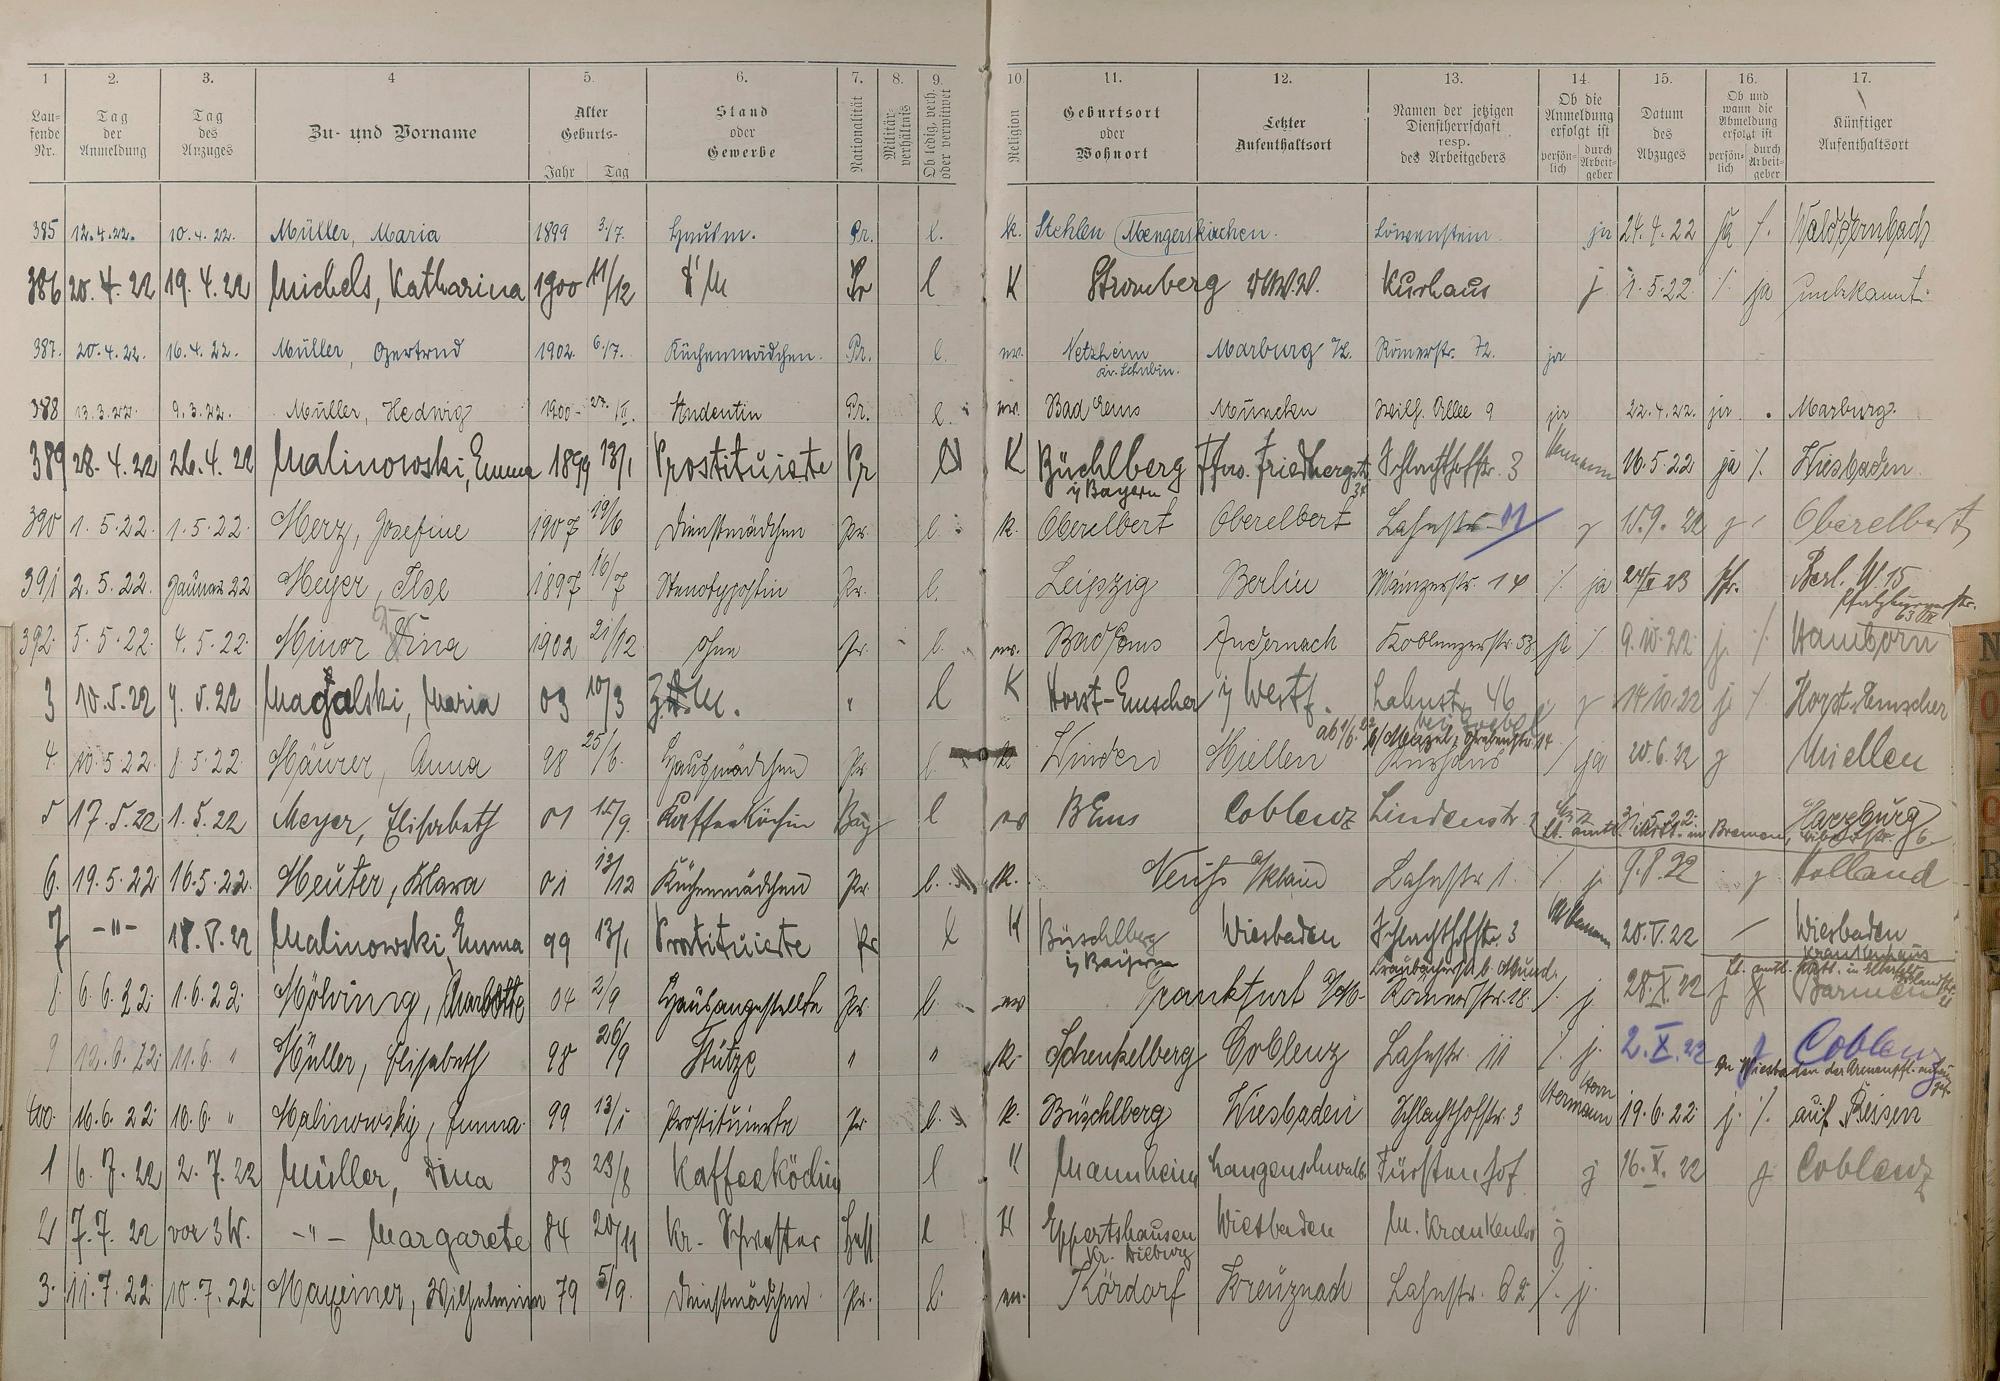 1 2. 3. 4 5. 6. 7. 8. 9. 10. 11. 12. 13. 14. 15. 16. 17.
Lau-fende Nr. Tag der Anmeldung Tag des Anzuges Zu- und Vorname Alter Geburts- Jahr Tag Stand oder Gewerbe Nationalität Militär-verhältnis Ob ledig, verh. oder verwitwet Religion Geburtsort oder Wohnort Letzter Aufenthaltsort Namen der jetzigen Dienstherrschaft resp. des Arbeitgebers Ob die Anmeldung erfolgt ist persön-lich durch Arbeit-geber Datum des Abzuges Ob und wann die Abmeldung erfolgt ist persön-lich durch Arbeit-geber Künftiger Aufenthaltsort
385 12.4.22. 10.4.22. Müller, Maria 1899 3./7. Hausm. Pr. l. k. Stehlen (Mengerskirchen. Löwenstein ja 24.4.22 ja /. Waldernbach
386 20.4.22 19.4.22 Michels, Katharina 1900 11/12 Pr l K Stromberg Kurhaus j 1.5.22. /. ja unbekannt.
387. 20.4.22. 16.4.22. Müller, Gertrud 1902. 6./7. Küchenmädchen. Pr. l. ev. Netzheim Kr. Schubin. Marburg Römerstr. 72. ja
388 13.3.22. 9.3.22. Müller, Hedwig 1900 Studentin Pr. l. ev. Bad Ems München Wilh. Allee 9 ja 22.4.22. ja . Marburg.
389 28.4.22 26.4.22 Malinowski, Emma 1899 13/1 Prostituierte Pr K Büchlberg i/ Bayern Schlachthofstr. 3 16.5.22 ja /. Wiesbaden
390 1.5.22. 1.5.22. Merz, Josefine 1907 19/6 Dienstmädchen Pr. l. k. Oberelbert Oberelbert Lahnstr. 11 j 15.9.22 j Oberelbert
391 2. 5.22. Januar 22 Meyer, Ilse 1897 16/7 Stenotypistin Pr. l. Leipzig Berlin Mainzerstr. 14 /. ja 23 Berl. W. 15
392. 5.5.22. 4.5.22. Minor Tina 1902 21/12 ohne Pr. l. ev. Bad Ems Andernach Koblenzerstr. 53 ja /. 9.10.22 j. /. Hamborn
3 10.5.22 9.5.22 Magalski, Maria 03 10/3 " l K Horst-Emscher i/ Westf. Lahnstr. 46 j 14.10.22 j /. Horst-Emscher
4. 10.5.22 8.5.22. Mäurer, Anna 98 25/6. Hausmädchen Pr l. k. Winden Miellen Kurhaus / ja 20.6.22 j Miellen
5 17.5.22 1.5.22 Meyer, Elisabeth 01 15/9. Kaffeeköchin Bay l ev B Ems Coblenz Lindenstr. 31.5.22. Harzburg
6. 19.5.22 16.5.22. Meuter, Klara 01 13/12 Küchenmädchen Pr. l. k. Neuß a/Rhein Lahnstr 1. /. j. 9.8.22 j Holland
7 -"- 18.5.22 Malinowski Emma 99 13/1 Prostituierte Pr l K Büschlberg i/ Bayern Wiesbaden Schlachthofstr. 3 20.5.22 / Wiesbaden Krankenhaus
8. 6.6.22. 1.6.22. Mölving, Charlotte 04 2/9 Hausangestellte Pr. l. ev Frankfurt a/M- Römerstr. 18. /. j 28.X.22 j Barmen
9 12.6.22. 11.6. " Müller, Elisabeth 98 26/9 Stütze " " k. Schenkelberg Coblenz Lahnstr. 11 /. j. 2.X.22 j Coblenz
400. 16.6.22. 10.6. " Malinowsky, Emma. 99 13/1 Prostituierte Pr. l. k. Büschlberg Wiesbaden Schlachthofstr. 3 Hermann 19.6.22 j. /. auf Reisen
1 6.7.22 2.7.22 Müller, Dina 83 23/8 Kaffeeköchin l K Mannheim Langenschwalb. Fürstenhof j 16.X.22 j Coblenz
2 7.7.22 vor 3 W. -"- Margarete 84 20/11 Kr. Schwester Hess l K Eppertshausen Kr. Dieburg Wiesbaden M. Krankenhs j
3. 11.7.22. 10.7.22. Mayeiner, Wilhelmine 79 5/9. Dienstmädchen Pr. l. ev. Kördorf Kreuznach Lahnstr. 62 /. j.